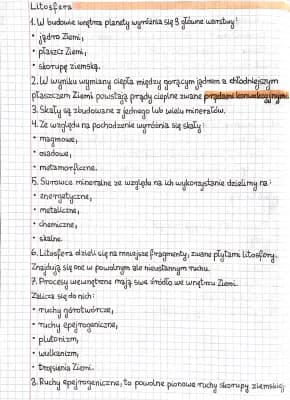 Litosfera
1. W budowie wnętrza planety wyróżnia się 3 główne warstwy:
• jądro Ziemi,
• płaszcz Ziemi,
• skorupę ziemską.
2. W wyniku wymiany ciepła między gorącym jądrem a chłodniejszym
płaszczem Ziemi powstają prądy cieplne zwane prądami konwekcyjnymi.
3. Skały są zbudowane z jednego lub wielu minerałów.
4. Ze względu na pochodzenie wyróżnia się skały:
• magmowe,
• osadowe,
• metamorficzne.
5. Surowce mineralne ze względu na ich wykorzystanie dzielimy na:
• energetyczne,
• metaliczne,
• chemiczne,
• skalne.
6. Litosfera dzieli się na mniejsze fragmenty, zwane płytami litosfery.
Znajdują się one w powolnym ale nieustannym ruchu.
7. Procesy wewnętrzne mają swe źródło we wnętrzu Ziemi.
Zalicza się do nich:
• ruchy górotwórcze,
• ruchy epejrogeniczne,
• plutonizm,
• wulkanizm,
• trzęsienia Ziemi.
8. Ruchy epejrogeniczne, to powolne pionowe ruchy skorupy ziemskiej